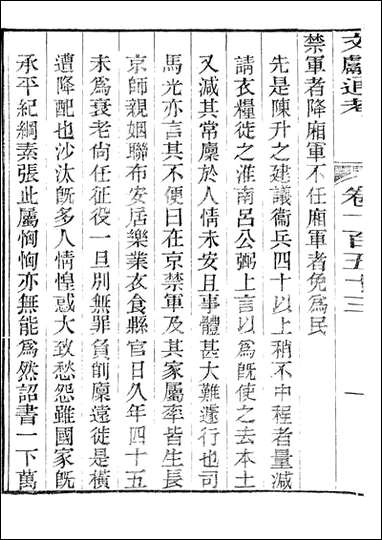 文獻通考　卷一百五十三　一
禁軍者降廂軍不任廂軍者免為民
先是陳升之建議衞兵四十以上稍不中程者量減
請衣糧徙之淮南呂公弼上言以為旣使之去本土
又減其常廩於人情未安且事體甚大難遽行也司
馬光亦言其不便曰在京禁軍及其家屬率皆生長
京師親姻聯布安居樂業衣食縣官日久年四十五
未為衰老尙任征役一旦別無罪負削廩遠徙是橫
遭降配也沙汰旣多人情惶惑大致愁怨雖國家旣
承平紀綱素張此屬恟恟亦無能為然詔書一下萬